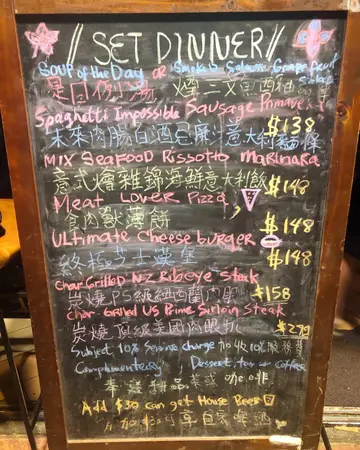 SET DINNER
Soup of the Day OR Smoked Salmon Grapefruit Salad
是日例湯 煙三文魚西柚
Spaghetti Impossible Sausage Primavera
未來肉腸白酒忌廉汁意大利麵條 $138
Mix Seafood Rissotto Marinara
意式燴雜錦海鮮意大利飯 $148
Meat Lover Pizza
食肉獸薄餅 $148
Ultimate Cheese burger
終極芝士漢堡 $148
Char Grilled NZ Ribeye Steak
炭燒PS級紐西蘭肉眼 $158
Char Grilled US Prime Sirloin Steak
炭燒頂級美國肉眼扒
Subject 10% Service charge 加收10%服務費
Complimentery, Dessert, tea or coffee
奉送甜品茶或咖啡
Add $30 can get House Beer
加$30可享自家啤酒